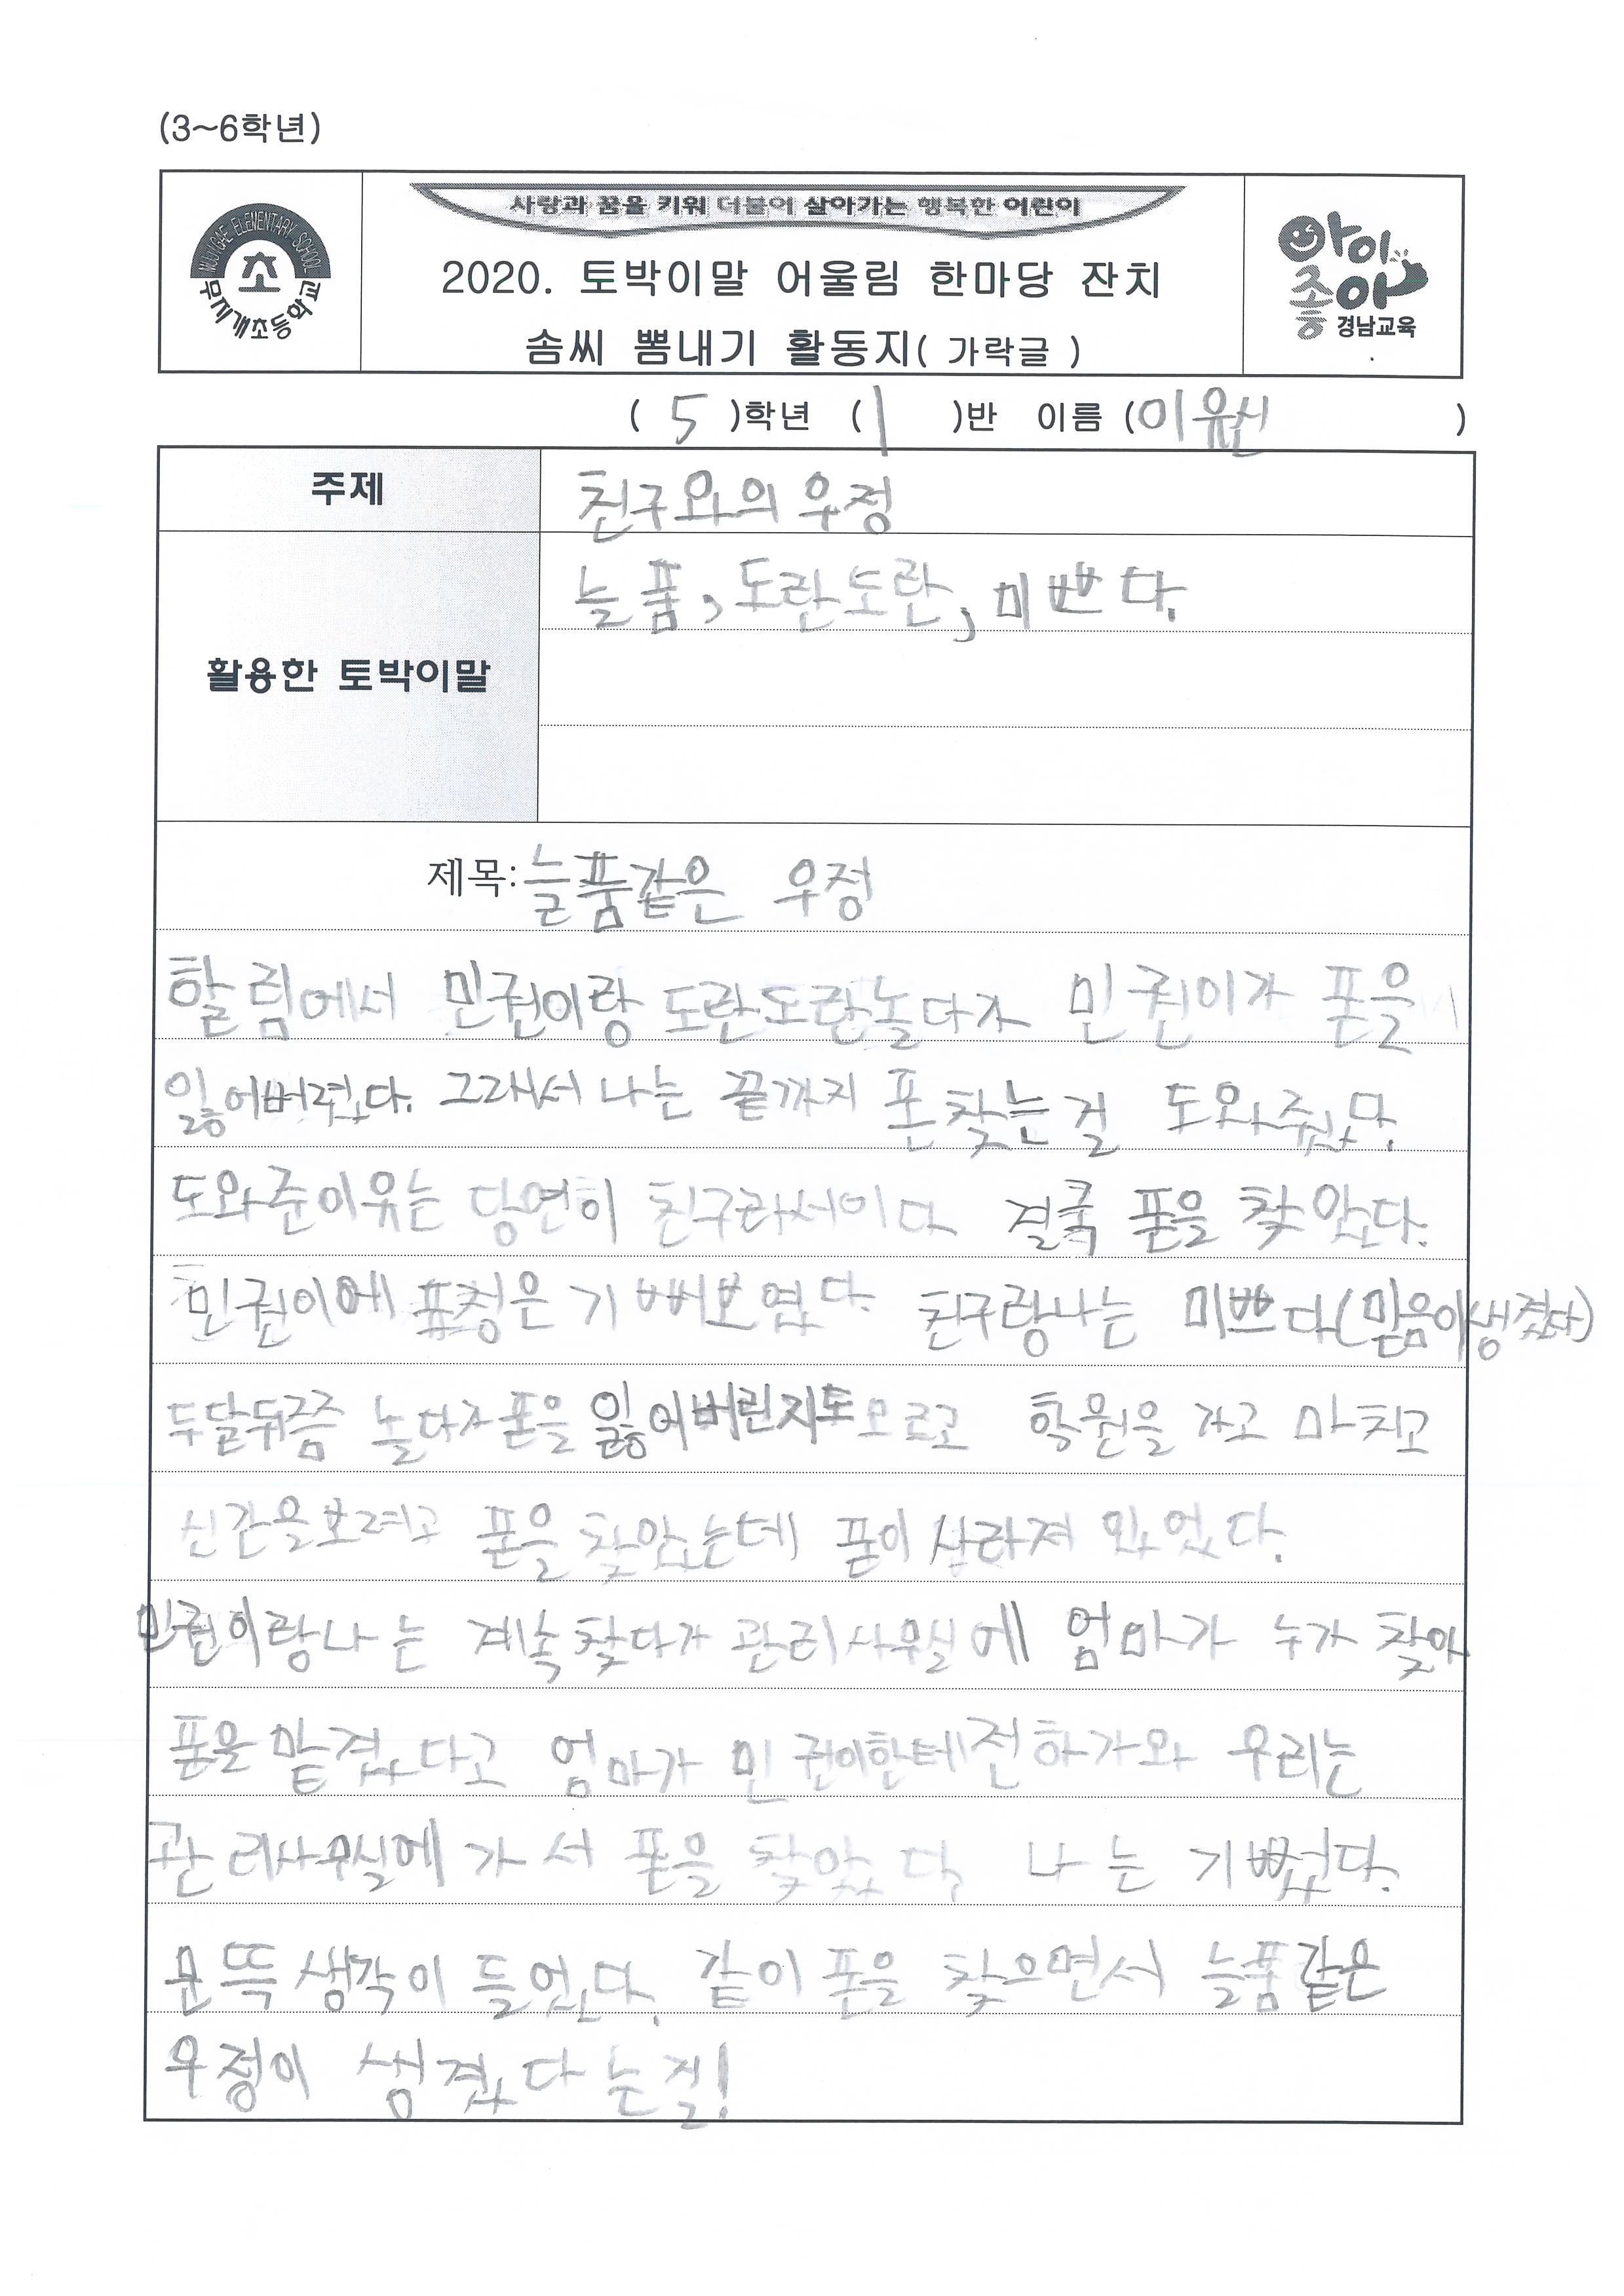 (3~6학년)
MUJIGAE ELEMENTARY SCHOOL
초
무지개초등학교
사랑과 꿈을 키워 더불어 살아가는 행복한 어린이
2020. 토박이말 어울림 한마당 잔치
솜씨 뽐내기 활동지( 가락글 )
아이좋아
경남교육
( 5 )학년 ( 1 )반 이름 (이유신 )
주제
친구와의 우정
활용한 토박이말
늘품, 도란도란, 미쁘다.
제목: 늘품같은 우정
할림에서 민권이랑 도란도란놀다가 민권이가 폰을
잃어버렸다. 그래서 나는 끝까지 폰 찾는걸 도와줬다.
도와준이유는 당연히 친구라서이다 결국 폰을 찾았다.
민권이에 표정은 기뻐보였다. 친구랑나는 미쁘다(믿음이생겼다)
두달뒤쯤 놀다가폰을 잃어버린지도모르고 학원을 가고 마치고
신간을보려고 폰을 찾았는데 폰이 사라져 있었다.
민권이랑나는 계속 찾다가 관리사무실에 엄마가 누가 찾아
폰을 맡겼다고 엄마가 민권이한테전하가와 우리는
관리사무실에 가서 폰을 찾았다. 나는 기뻤다.
문뜩 생각이 들었다. 같이 폰을 찾으면서 늘품같은
우정이 생겼다는걸!